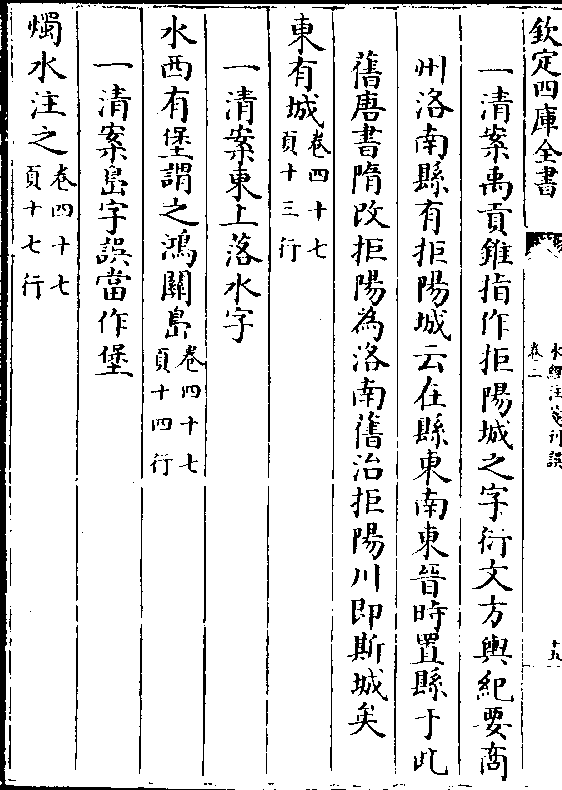 欽定四庫全書
水經注箋刊誤
卷二
十五
一清案禹貢錐指作拒陽城之字衍文方輿紀要商
州洛南縣有拒陽城云在縣東南東晉時置縣于此
舊唐書隋改拒陽為洛南舊治拒陽川即斯城矣
東有城卷四十七
頁十三行
一清案東上落水字
水西有堡謂之鴻關島卷四十七
頁十四行
一清案島字誤當作堡
燭水注之卷四十七
頁十七行